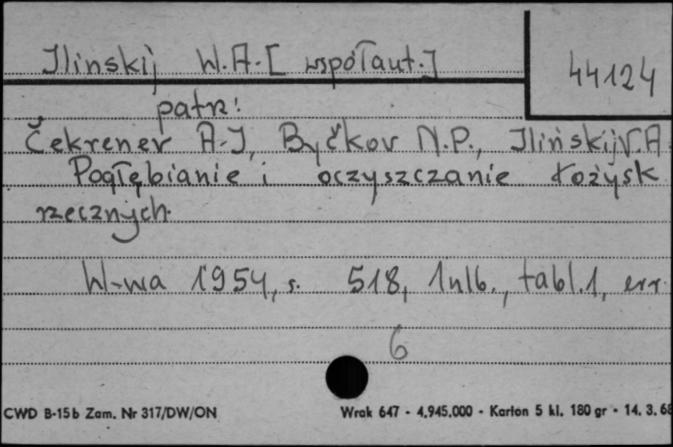 Ilinskij W.A. [współaut.]
44124
patrz:
Čekrener A.I, Byčkov N.P., Ilinskij V.A
Pogłębianie i oczyszczanie łożysk
rzecznych.
W-wa 1954, s. 518, 1 nlb., tabl.1, err
6
CWD B-15b Zam. Nr 317/DW/ON Wrak 647 - 4.945.000 - Karton 5 kl. 180 gr - 14. 3. 68